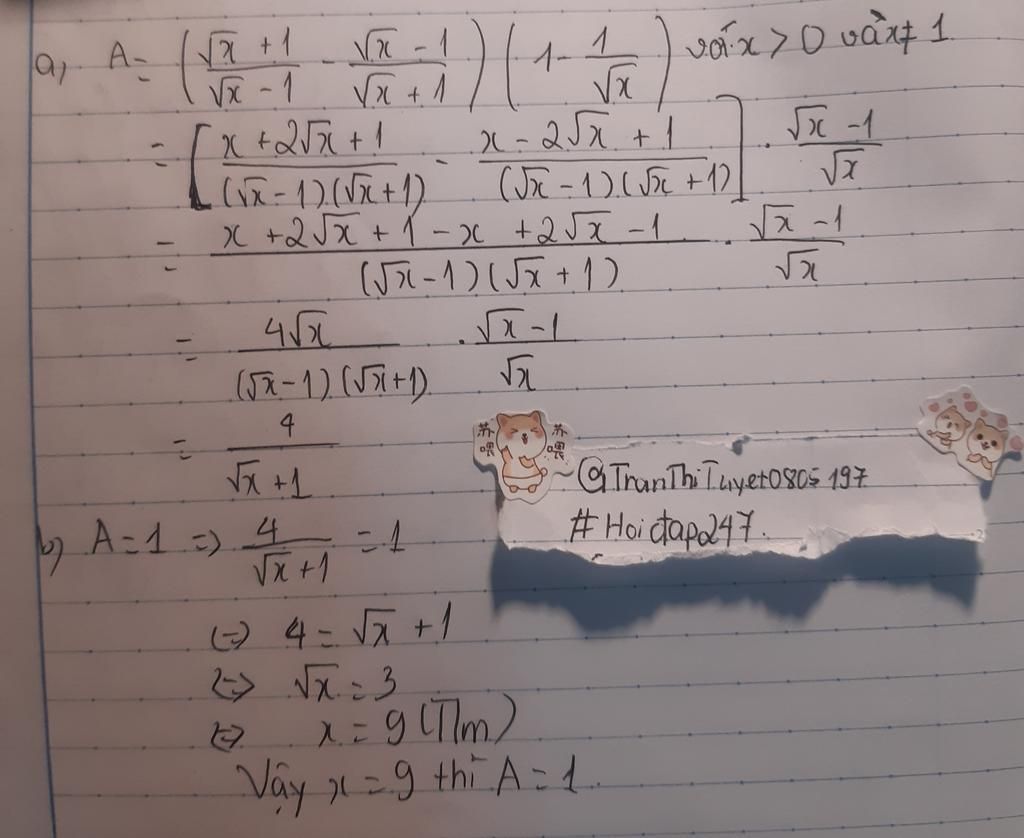 a, A = (√x + 1 / √x - 1 - √x - 1 / √x + 1) (1 - 1 / √x) với x > 0 và x ≠ 1
= [x + 2√x + 1 / (√x - 1).(√x + 1) - x - 2√x + 1 / (√x - 1).(√x + 1)] . √x - 1 / √x
= x + 2√x + 1 - x + 2√x - 1 / (√x - 1)(√x + 1) . √x - 1 / √x
= 4√x / (√x - 1)(√x + 1) . √x - 1 / √x
= 4 / √x + 1
苏喂 苏喂
@TranThiTuyet0805197
#Hoidap247.
b) A = 1 => 4 / √x + 1 = 1
(=) 4 = √x + 1
<=> √x = 3
<=> x = 9 (TM)
Vậy x = 9 thì A = 1.